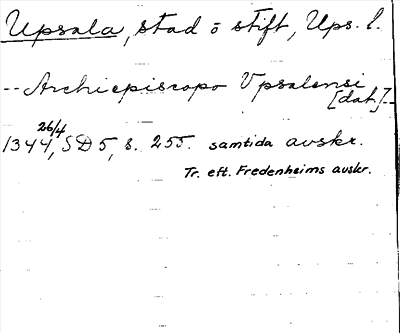 Upsala, stad o stift, Ups. l.
-- Archiepiscopo Vpsalensi
[dat.]--
26/4
1344, SD 5, s. 255. samtida avskr.
Tr. eft. Fredenheims avskr.